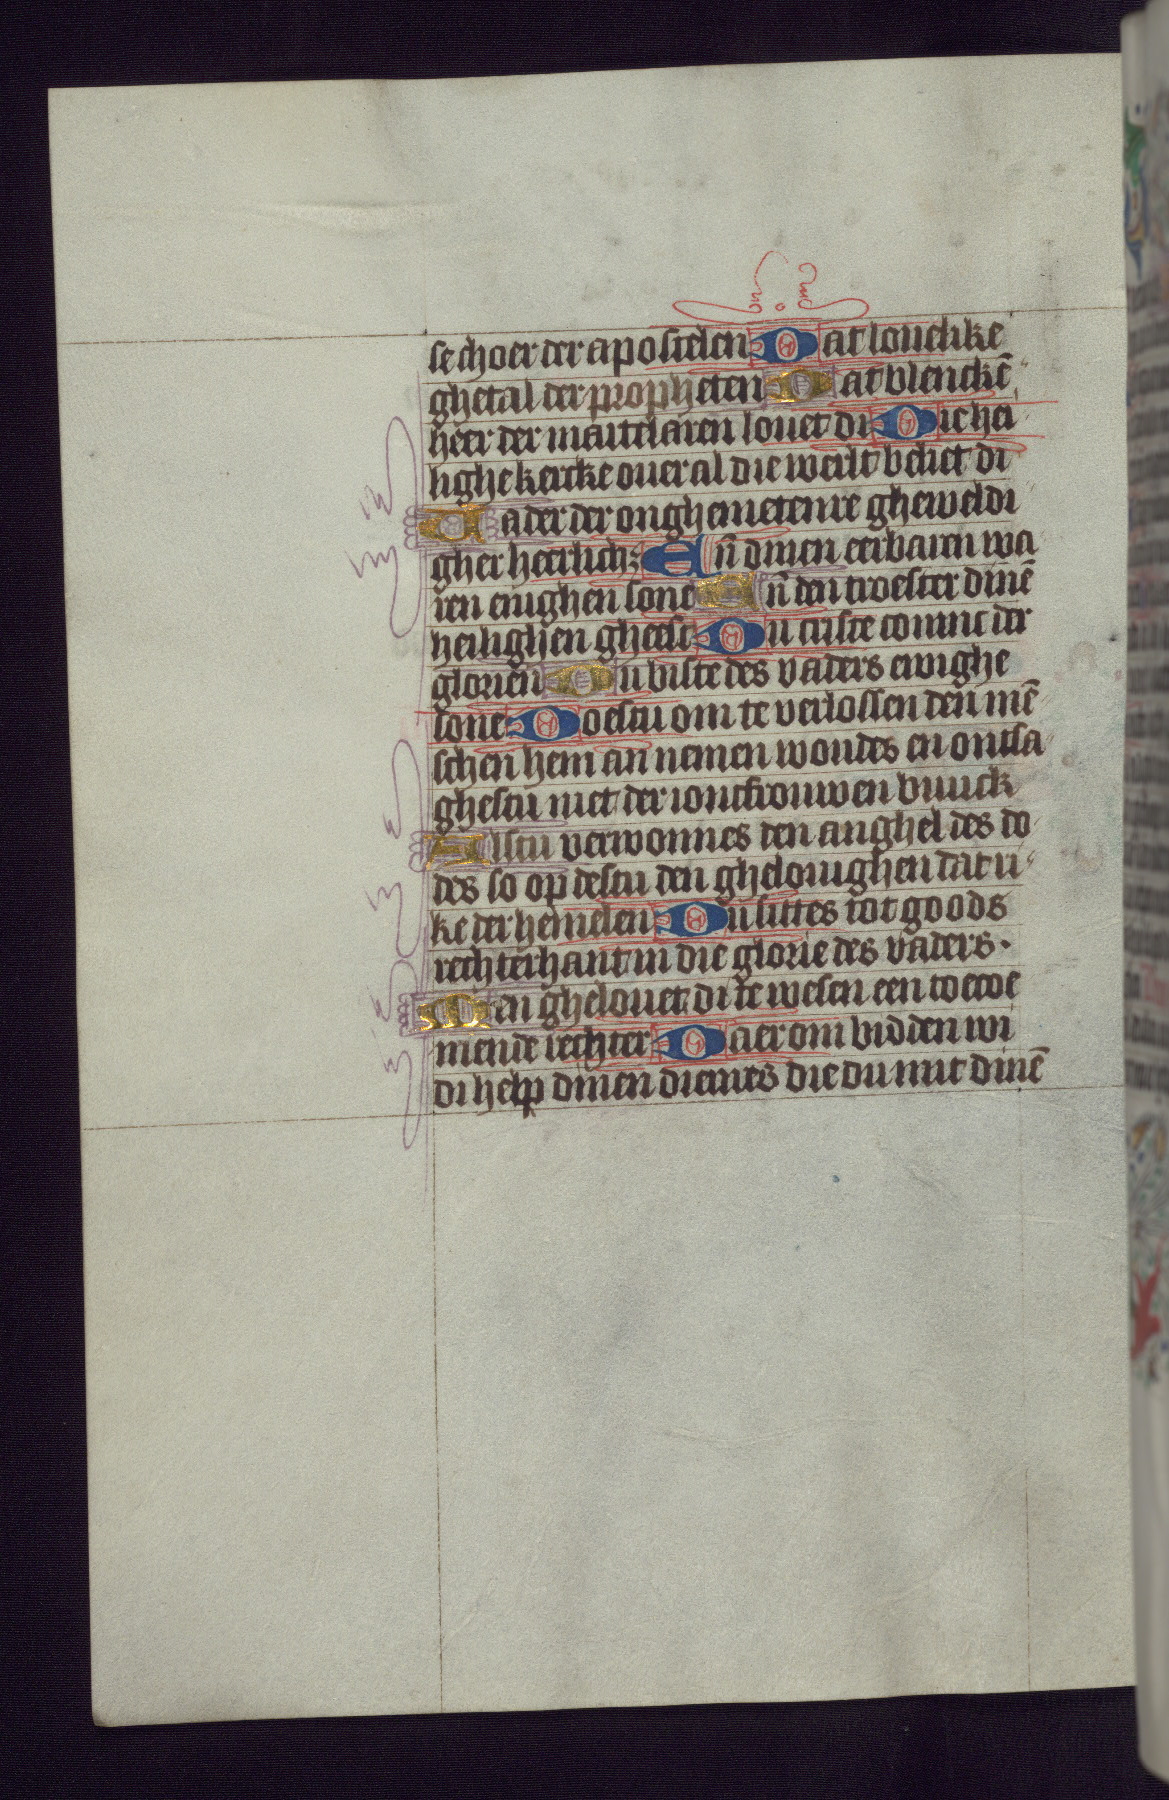 se choer der apostelen Dat louelike
ghetal der propheten Dat blenckē
heer der martelaren louet di Die hei
lighe kercke ouer al die werlt beliet di
Vader der onghemetenre gheweldi
gher heerlichz Eñ dinen eerbaren wa
ren enighen sone Eñ den troester dinē
heilighen gheest Du criste coninc der
glorien Du biste des vaders ewighe
sone Doestu om te verlossen den mē
schen hem an nemen wondes en ontsa
ghestu niet der ioncfrouwen buuck
Alstu verwonnes den anghel des do
des so op destu den ghelouighen dat ri
ke der hemelen Du sittes tot goods
rechterhant in die glorie des vaders.
Men ghelouet di te wesen een toecoe
mende rechter Daer om bidden wi
di help dinen dienres die du mit dinē